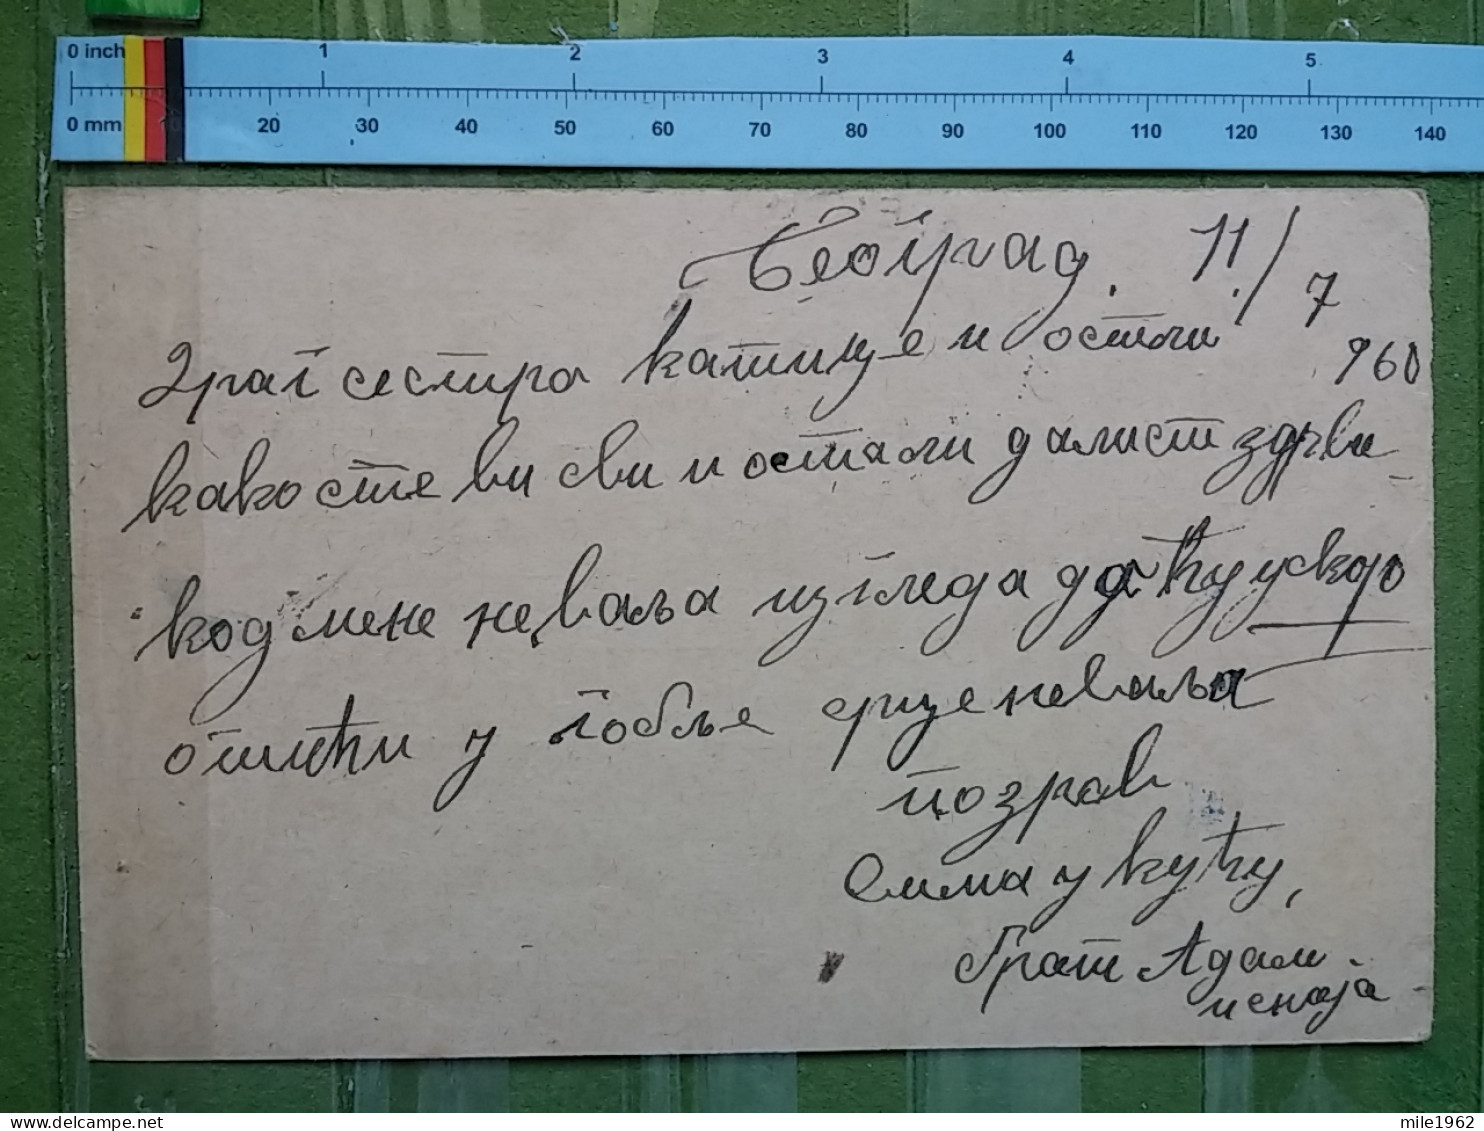 0 inch 1 2 3 4 5
0 mm 10 20 30 40 50 60 70 80 90 100 110 120 130 140
Београд. 11/7
960
Драг сестра катице и остали
како сте ви сви и остали далист здрви
код мене неваља изгледа да ћу ускоро
отићи у гобље срце неваља
поздрав
Свима у кућу,
брат Адам
и снаја
mile1962